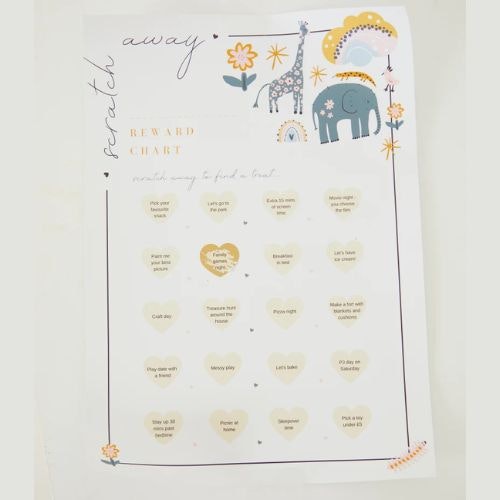 scratch away
REWARD
CHART
scratch away to find a treat...
Pick your
favourite
snack
Let's go to
the park
Extra 15 mins
of screen
time
Movie night -
you choose
the film
Paint me
your best
picture
Family
games
night
Breakfast
in bed
Let's have
ice cream!
Craft day
Treasure hunt
around the
house
Pizza night
Make a fort with
blankets and
cushions
Play date with
a friend
Messy play
Let's bake
PJ day on
Saturday
Stay up 30
mins past
bedtime
Picnic at
home
Sleepover
time
Pick a toy
under £5